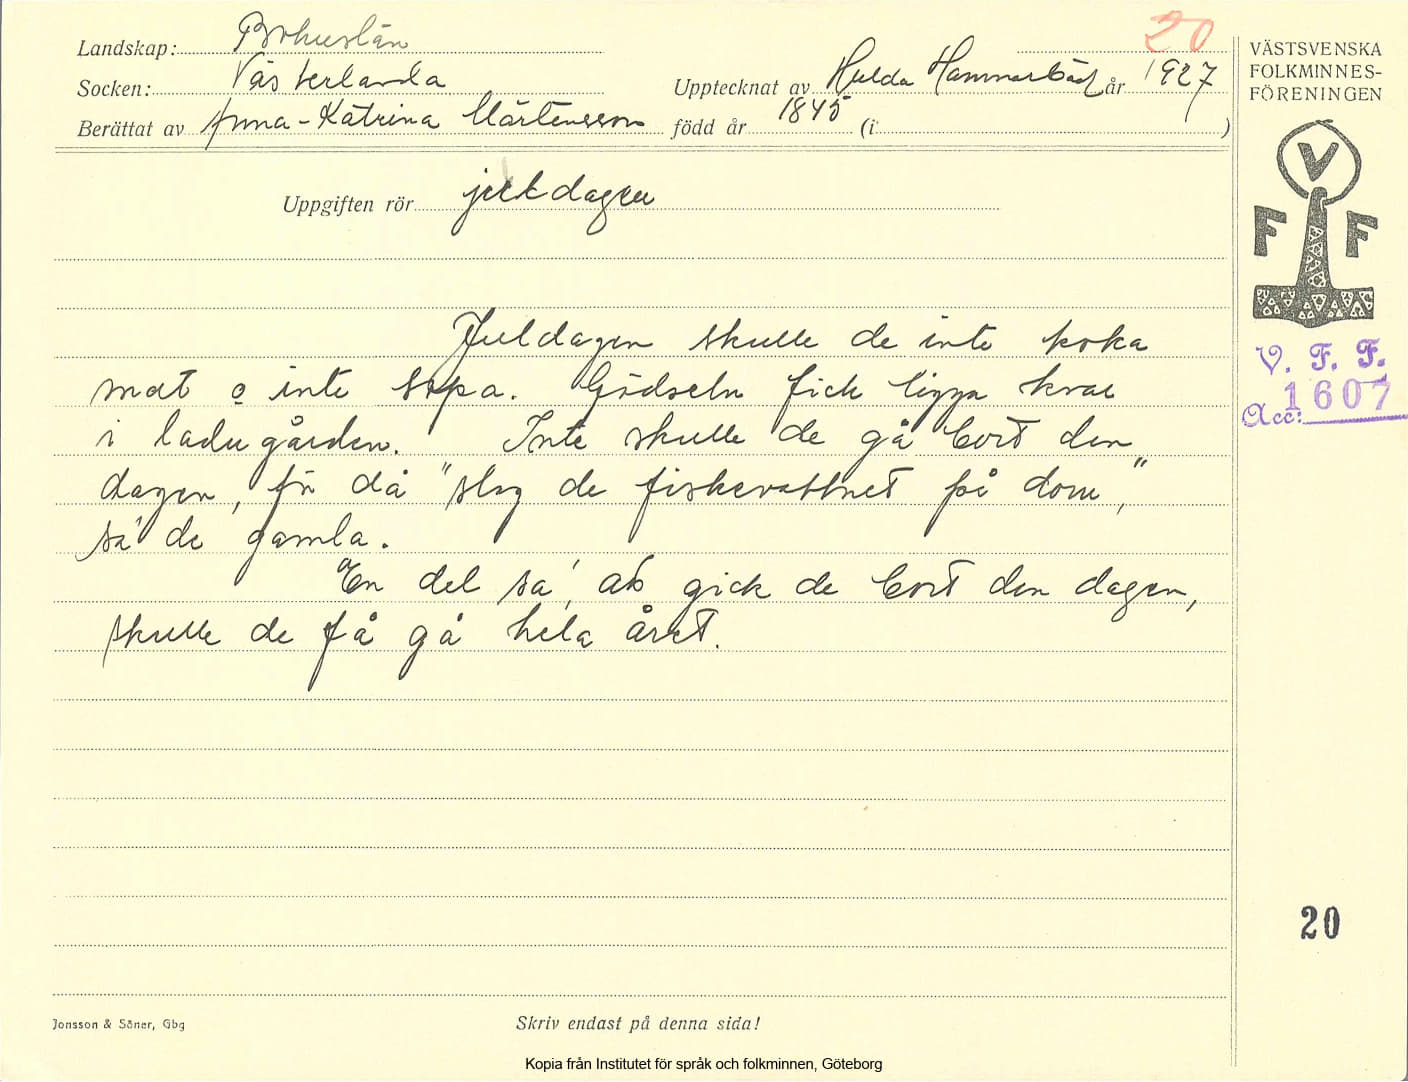 Landskap: Bohuslän
20
Socken: Västerlanda
Upptecknat av Hulda Hammarbäck år 1927
Berättat av Anna-Katrina Mårtensson född år 1845 (i )
Uppgiften rör juldagen
Juldagen skulle de inte koka
mat o inte sopa. Gödseln fick ligga kvar
i ladugården. Inte skulle de gå bort den
dagen, för då "slog de fiskevattnet på dom",
sa' de gamla.
En del sa', att gick de bort den dagen,
skulle de få gå hela året.
VÄSTSVENSKA
FOLKMINNES-
FÖRENINGEN
V
F F
V. F. F.
Acc: 1607
20
Jonsson & Söner, Gbg
Skriv endast på denna sida!
Kopia från Institutet för språk och folkminnen, Göteborg